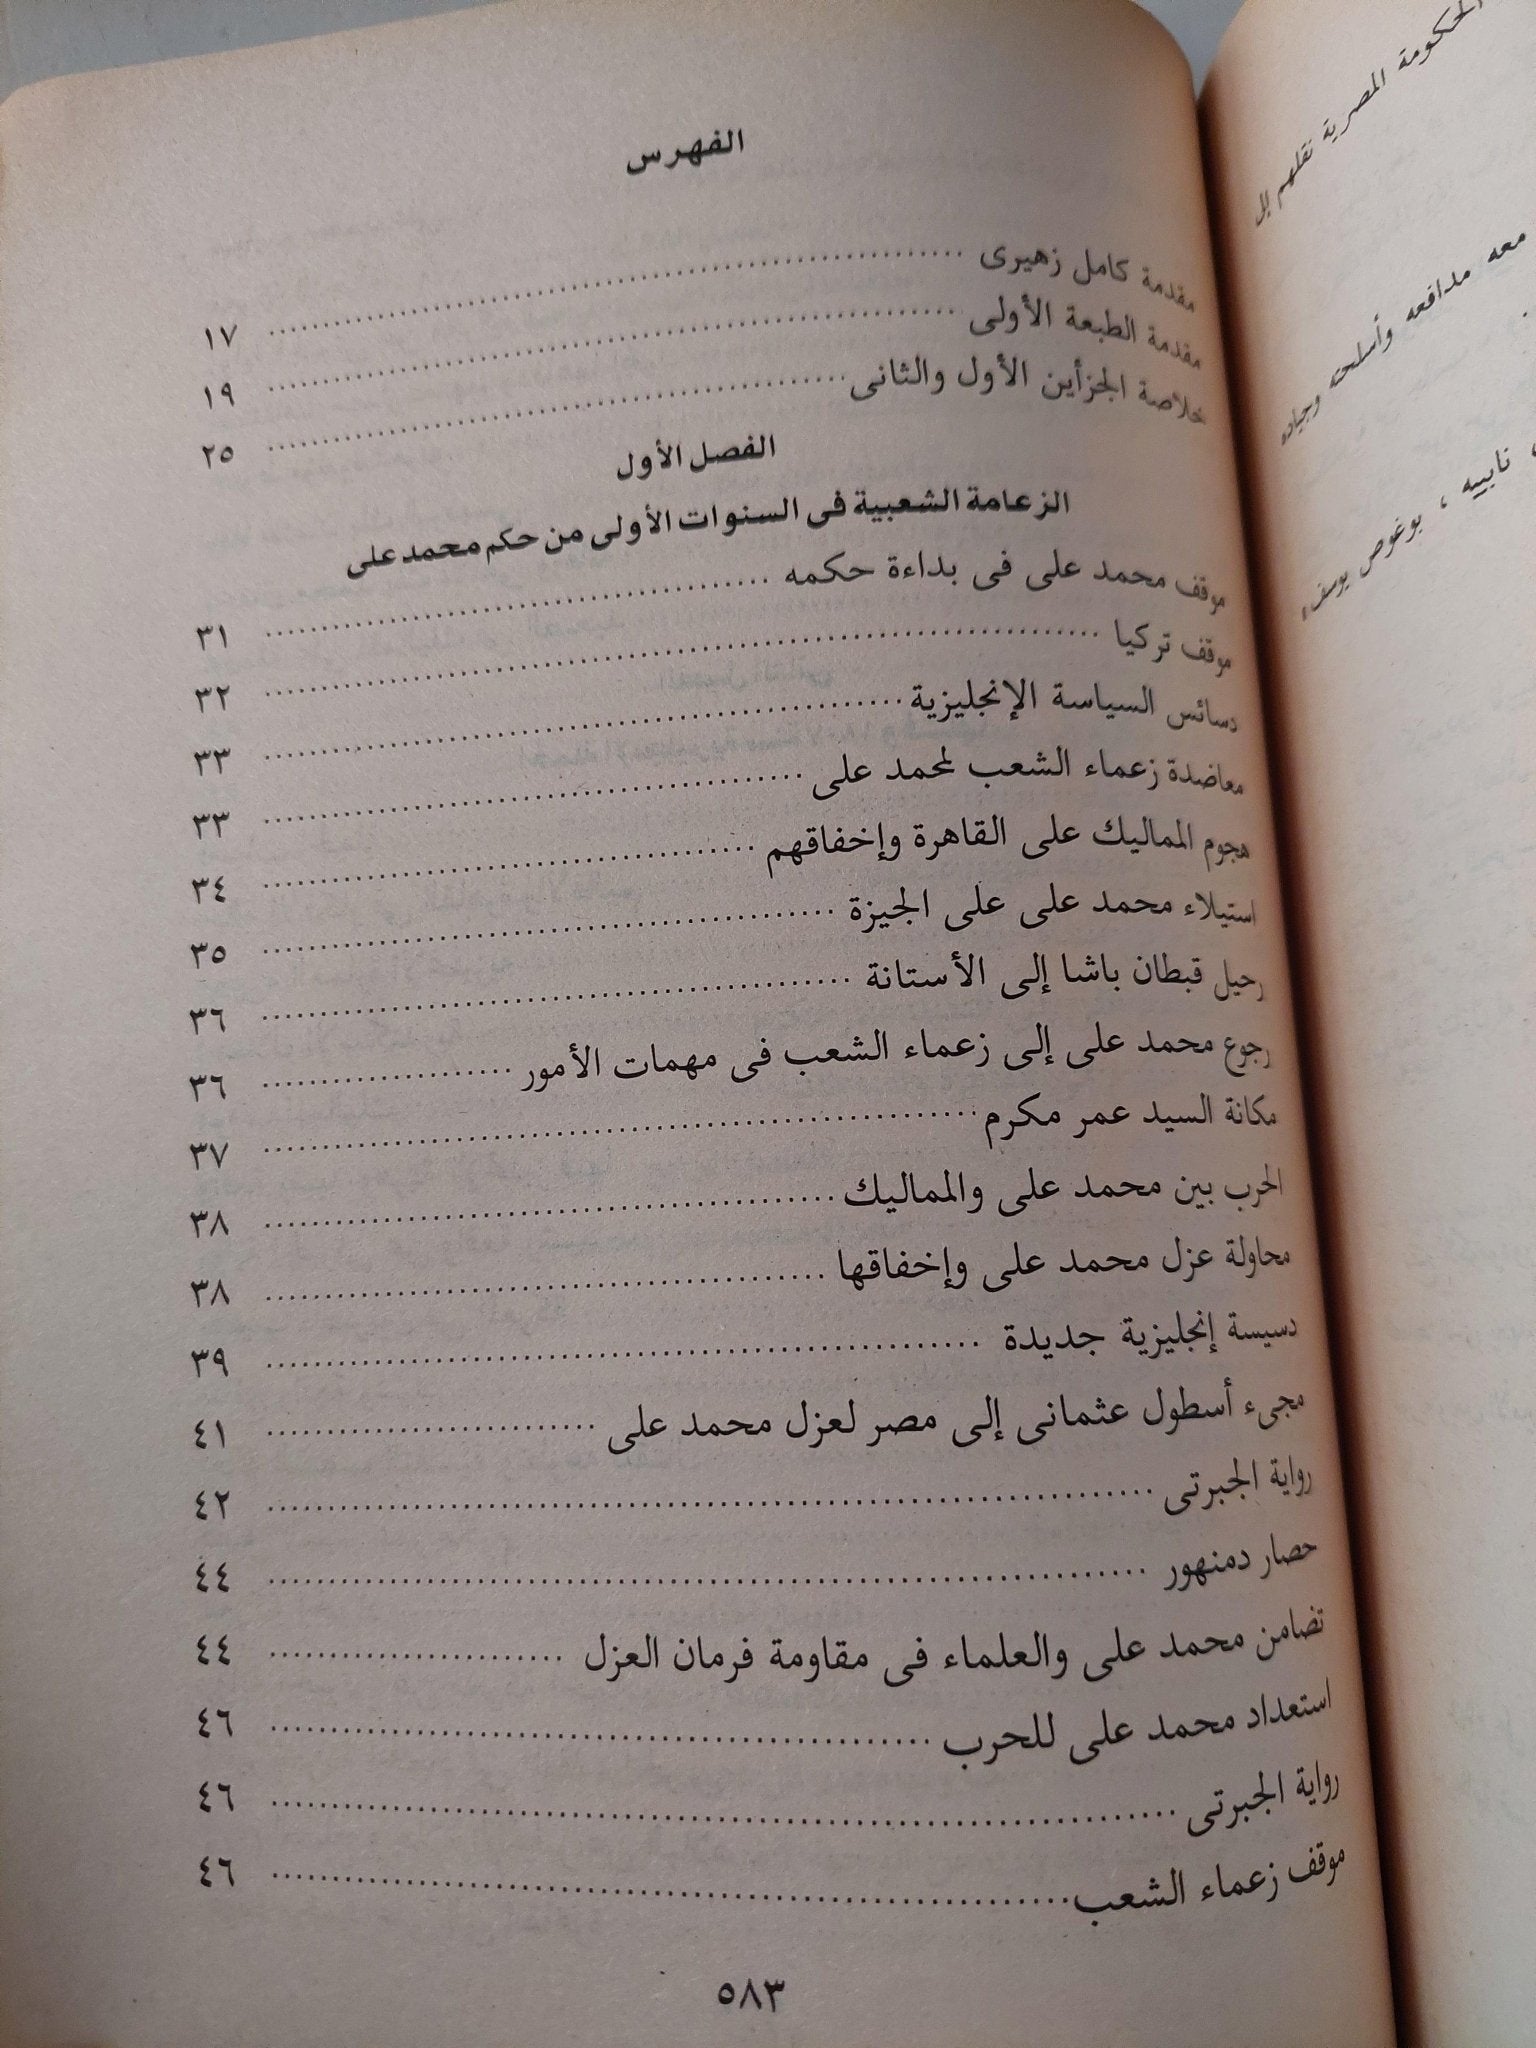 الفهرس
مقدمة كامل زهيرى ........ ١٧
مقدمة الطبعة الأولى ........ ١٩
خلاصة الجزأين الأول والثانى ........ ٢٥
الفصل الأول
الزعامة الشعبية فى السنوات الأولى من حكم محمد على
موقف محمد على فى بداءة حكمه ........ ٣١
موقف تركيا ........ ٣٢
دسائس السياسة الإنجليزية ........ ٣٣
معاضدة زعماء الشعب لمحمد على ........ ٣٣
هجوم المماليك على القاهرة وإخفاقهم ........ ٣٤
استيلاء محمد على على الجيزة ........ ٣٥
رحيل قبطان باشا إلى الأستانة ........ ٣٦
رجوع محمد على إلى زعماء الشعب فى مهمات الأمور ........ ٣٦
مكانة السيد عمر مكرم ........ ٣٧
الحرب بين محمد على والمماليك ........ ٣٨
محاولة عزل محمد على وإخفاقها ........ ٣٨
دسيسة إنجليزية جديدة ........ ٣٩
مجىء أسطول عثمانى إلى مصر لعزل محمد على ........ ٤١
رواية الجبرتى ........ ٤٢
حصار دمنهور ........ ٤٤
تضامن محمد على والعلماء فى مقاومة فرمان العزل ........ ٤٤
استعداد محمد على للحرب ........ ٤٦
رواية الجبرتى ........ ٤٦
موقف زعماء الشعب ........ ٤٦
٥٨٣
الحكومة المصرية نقلهم إلى
معه مدافعه وأسلحته وجياده
نابييه ، بوغوص يوسف،